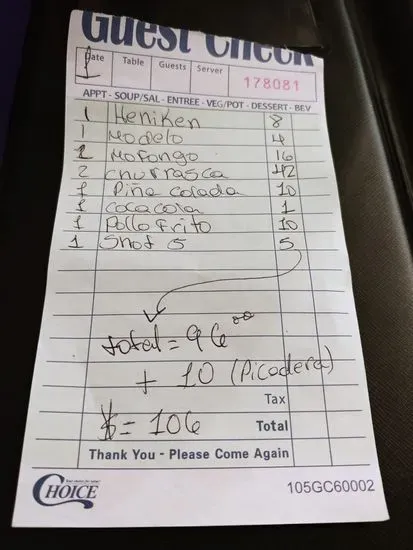 Guest Check
Date Table Guests Server
1 178081
APPT - SOUP/SAL - ENTREE - VEG/POT - DESSERT - BEV
1 Heniken 8
1 Modelo 4
1 Mofongo 16
2 Churrasca 42
1 Piña colada 10
1 Coca cola 1
1 Pollo frito 10
1 Shot 5 5
total = 96 00
+ 10 (Picadera)
Tax
$ = 106 Total
Thank You - Please Come Again
CHOICE
105GC60002